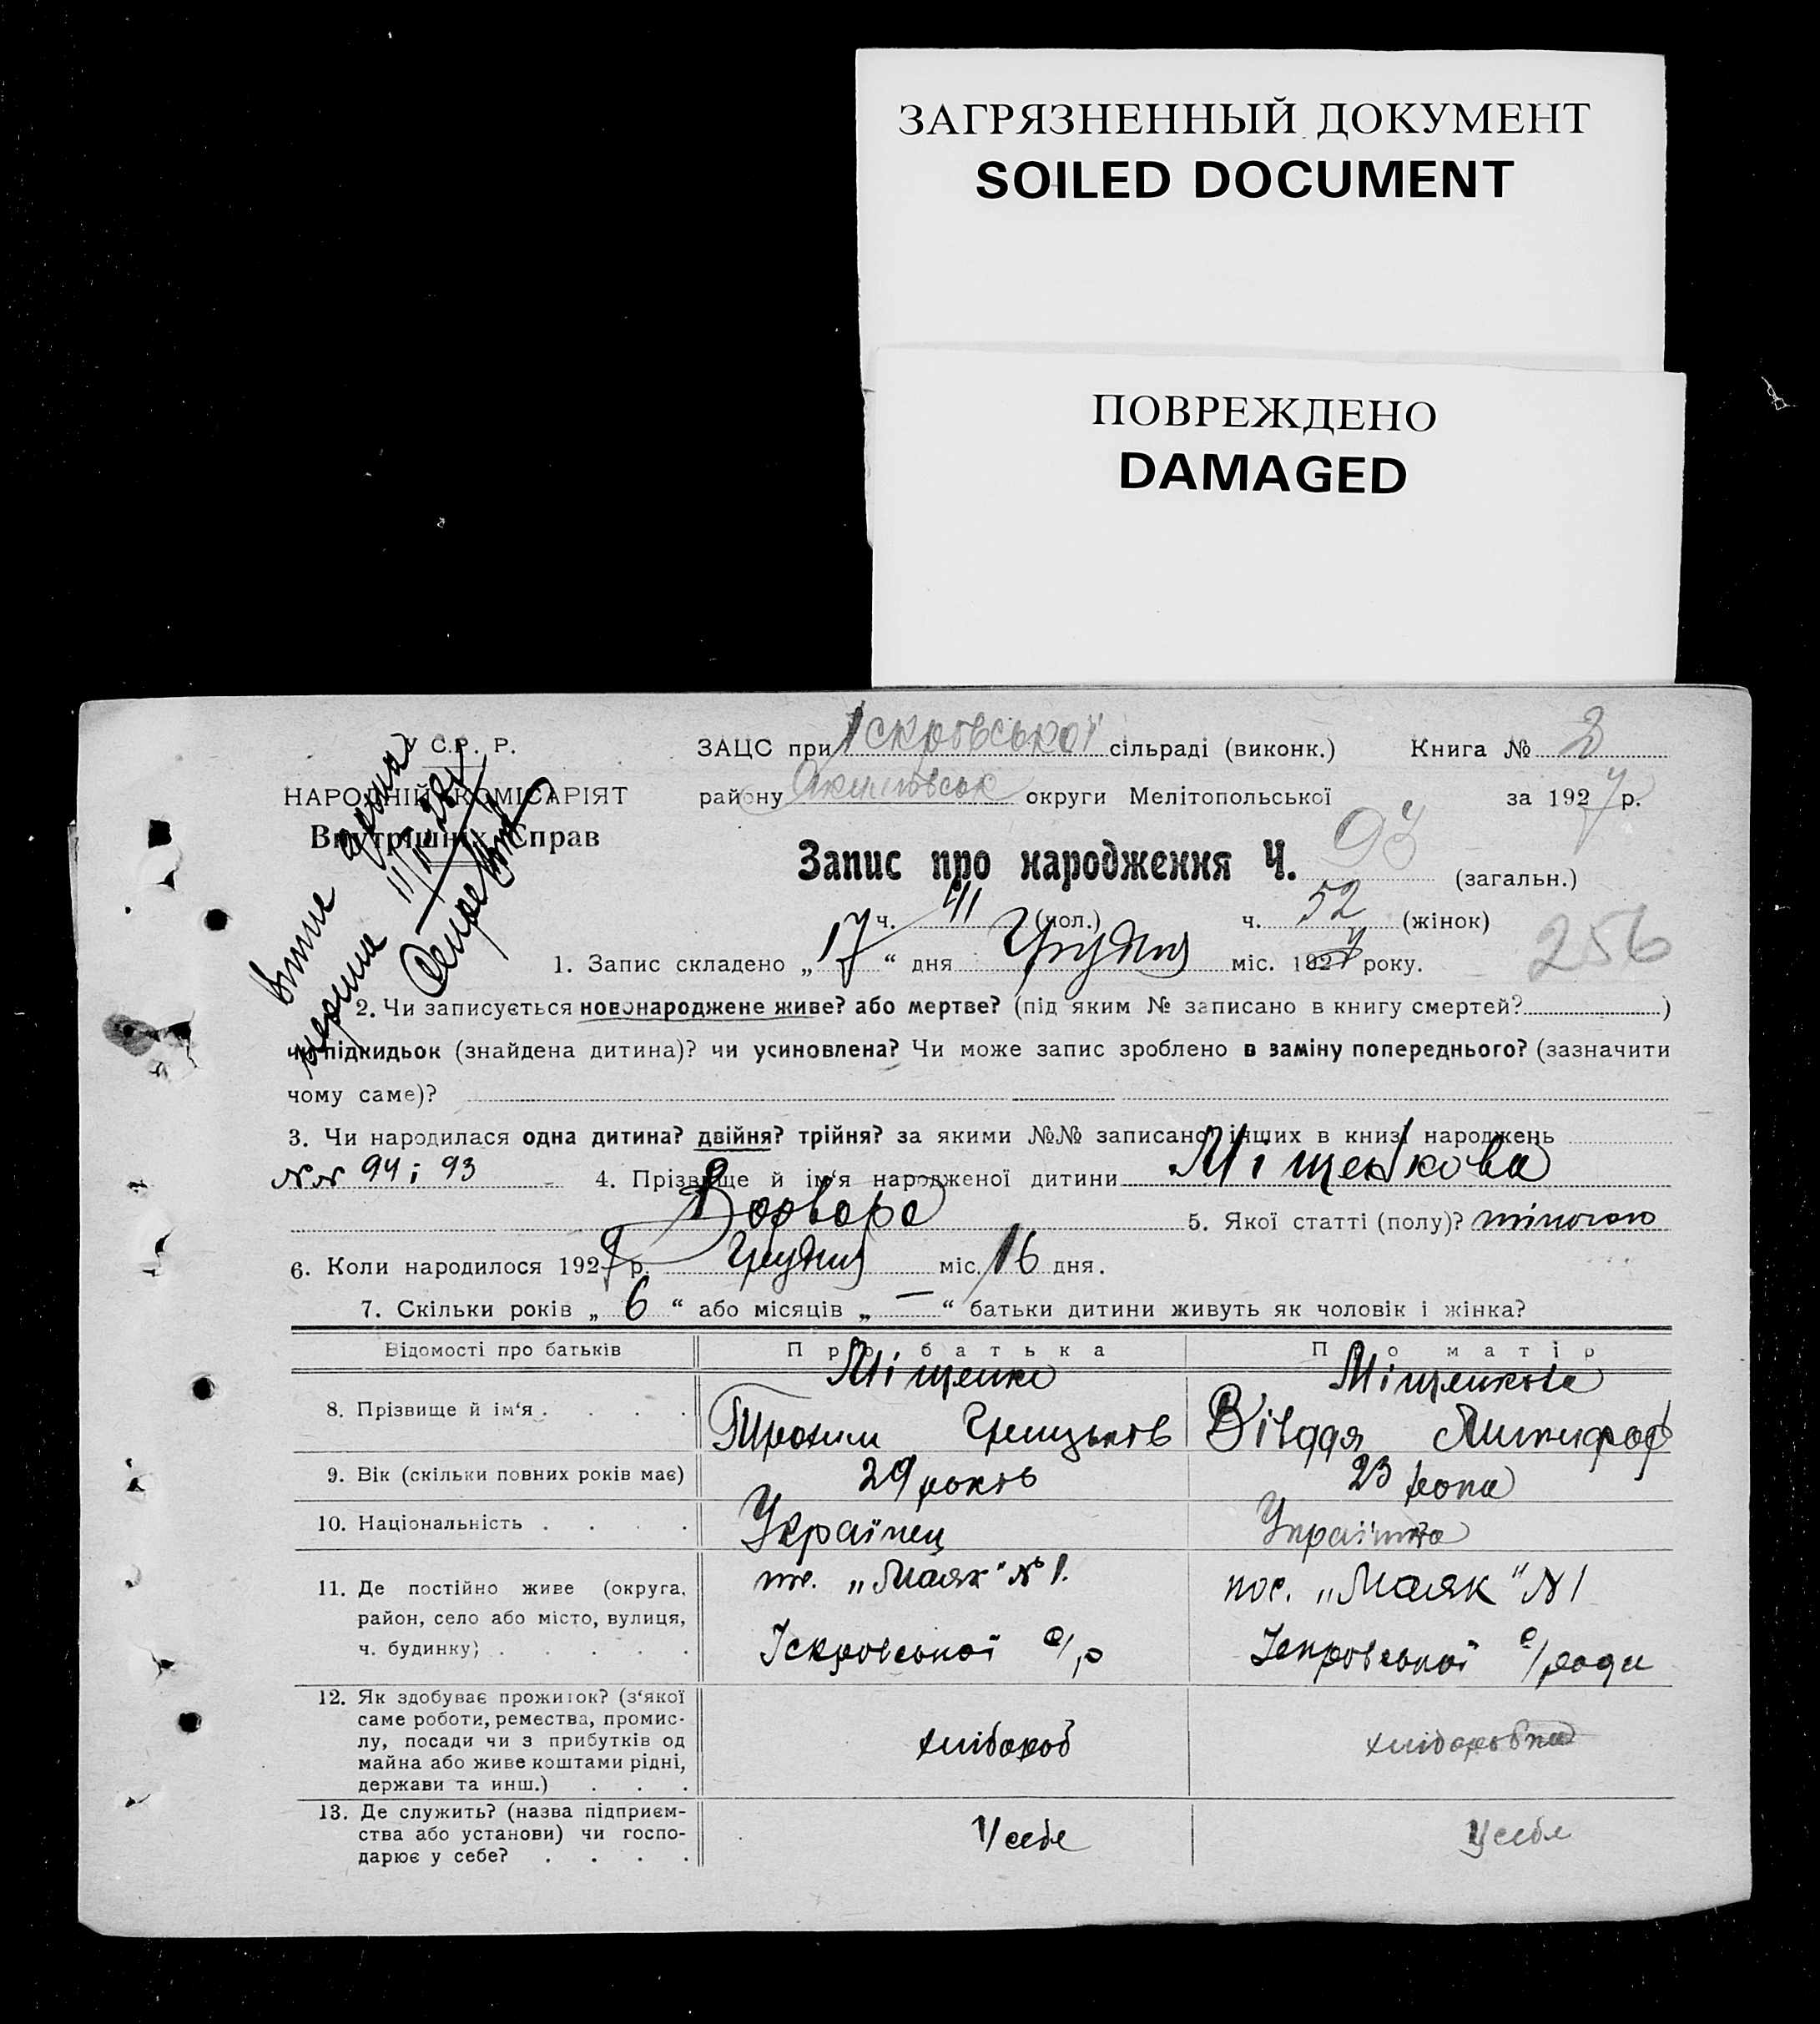 ЗАГРЯЗНЕННЫЙ ДОКУМЕНТ
SOILED DOCUMENT
ПОВРЕЖДЕНО
DAMAGED
У С.Р. Р.
НАРОДНІЙ КОМІСАРІЯТ
Внутрішніх Справ
ЗАЦС при Іскровської сільраді (виконк.) Книга № 2
району Якимовськ округи Мелітопольської за 1927 р.
Запис про народження Ч. 93 (загальн.)
ч. 41 (чол.) ч. 52 (жінок)
256
1. Запис складено „ 17 “ дня Грудня міс. 1927 року.
2. Чи записується новонароджене живе? або мертве? (під яким № записано в книгу смертей? )
чи підкидьок (знайдена дитина)? чи усиновлена? Чи може запис зроблено в заміну попереднього? (зазначити
чому саме)?
3. Чи народилася одна дитина? двійня? трійня? за якими №№ записано інших в книзі народжень
№№ 94 і 93 4. Прізвище й ім‘я народженої дитини Міщенкова
Варвара 5. Якої статті (полу)? жіночою
6. Коли народилося 1927 р. Грудня міс. 16 дня.
7. Скільки років „ 6 “ або місяців „ — “ батьки дитини живуть як чоловік і жінка?
Відомості про батьків Про батька Про матір
8. Прізвище й ім‘я . . . . Міщенко Міщенкова
Трохим Грицьков Вівдя
9. Вік (скільки повних років має) 29 років 23 рока
10. Національність . . . . Українец Українка
11. Де постійно живе (округа, район, село або місто, вулиця, ч. будинку) . . . . . пос. „Маяк“ №1. пос. „Маяк“ №1
Іскровської с/р Іскровської с/ради
12. Як здобуває прожиток? (з‘якої
саме роботи, ремества, промис-
лу, посади чи з прибутків од
майна або живе коштами рідні,
держави та инш.) . . . хлібороб хлібо­робка
13. Де служить? (назва підприєм-
ства або установи) чи госпо-
дарює у себе? . . . . У себе У себе